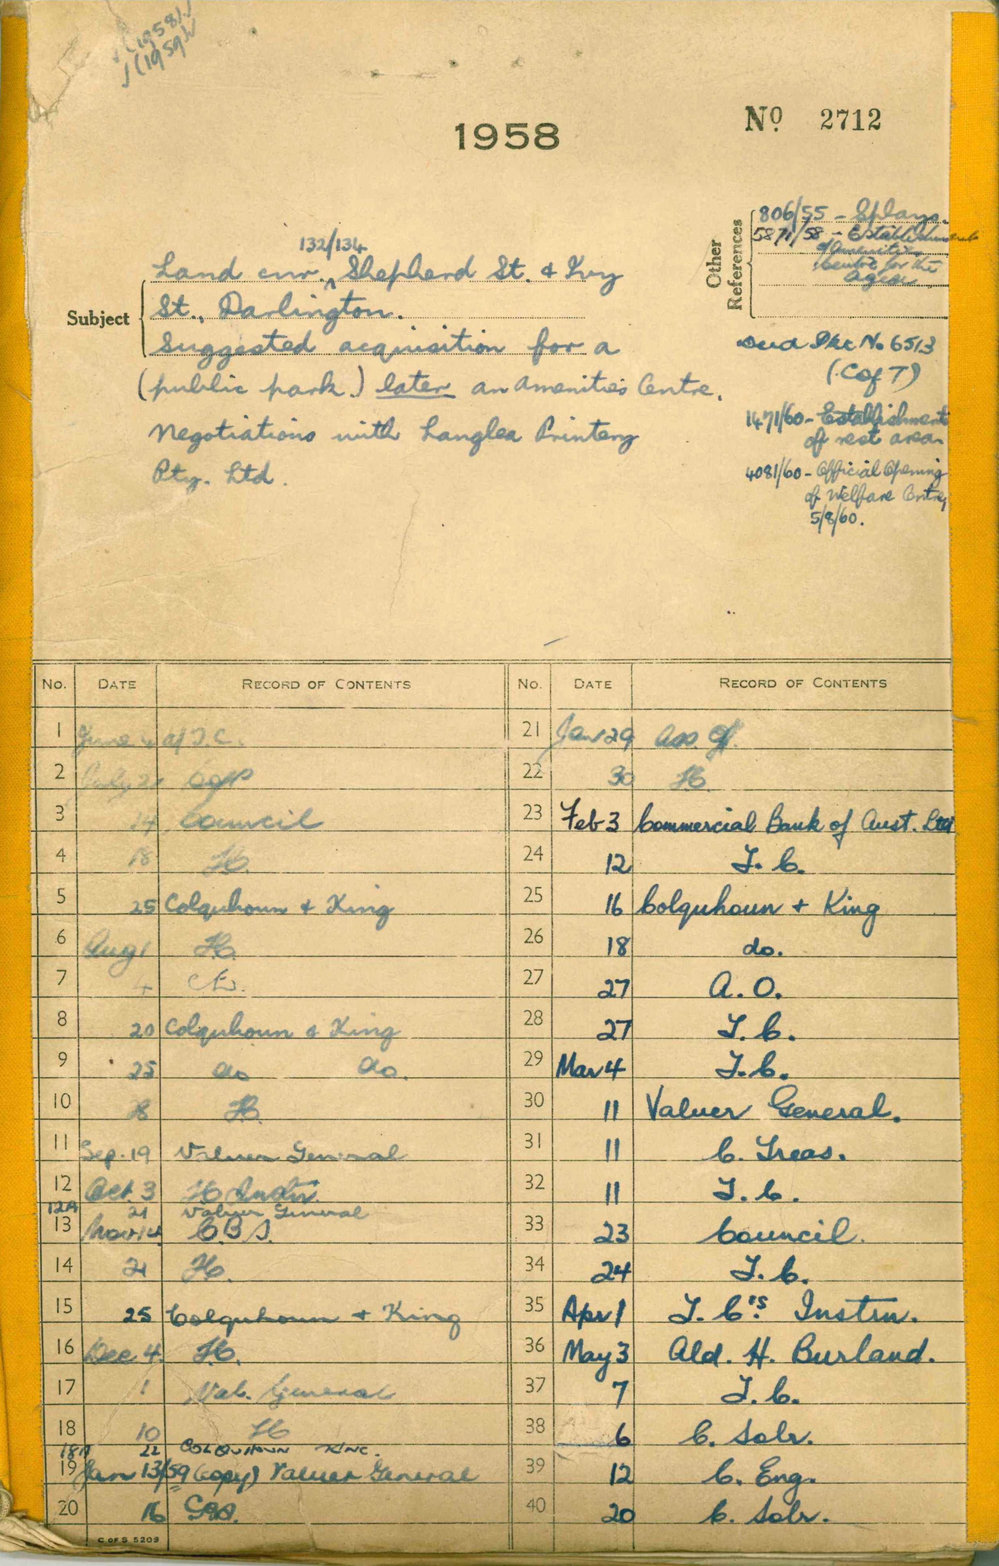 (1958)
(1959)
1958
No 2712
Other References
806/55 - Splays.
5871/58 - Establishment
of Amenities
Centre for the
Aged
Subject
132/134
Land cnr. Shepherd St. & Ivy
St., Darlington.
Suggested acquisition for a
(public park.) later an Amenities Centre.
Negotiations with Langlea Printery
Pty. Ltd.
Deed Pkt No 6513
(C of T)
1471/60 - Establishment
of rest area
4081/60 - Official Opening
of Welfare Centre,
5/8/60.
No. DATE RECORD OF CONTENTS
1 June 4 a/T.C.
2 July
3 14 Council
4 18 H.
5 25 Colquhoun & King
6 Aug 1 H.
7 4
8 20 Colquhoun & King
9 25 do do.
10 8 H.
11 Sep. 19 Valuer General
12 Oct. 3 H
12A 21 Valuer General
13 Nov 14 C.B.S.
14 21 H.
15 25 Colquhoun & King
16 Dec 4. H.
17 1 Val. General
18 10 H
18A 22 COLQUHOUN KING.
19 Jan 13/59 (copy) Valuer General
20 16
C OF S 5209
No. DATE RECORD OF CONTENTS
21 Jan 29 Ass Of.
22 30 H.
23 Feb 3 Commercial Bank of Aust. Ltd
24 12 T. C.
25 16 Colquhoun & King
26 18 do.
27 27 A. O.
28 27 T. C.
29 Mar 4 T. C.
30 11 Valuer General.
31 11 C. Treas.
32 11 T. C.
33 23 Council.
34 24 T. C.
35 Apr 1 T. C's Instrn.
36 May 3 Ald. H. Burland.
37 7 T. C.
38 6 C. Solr.
39 12 C. Eng.
40 20 C. Solr.